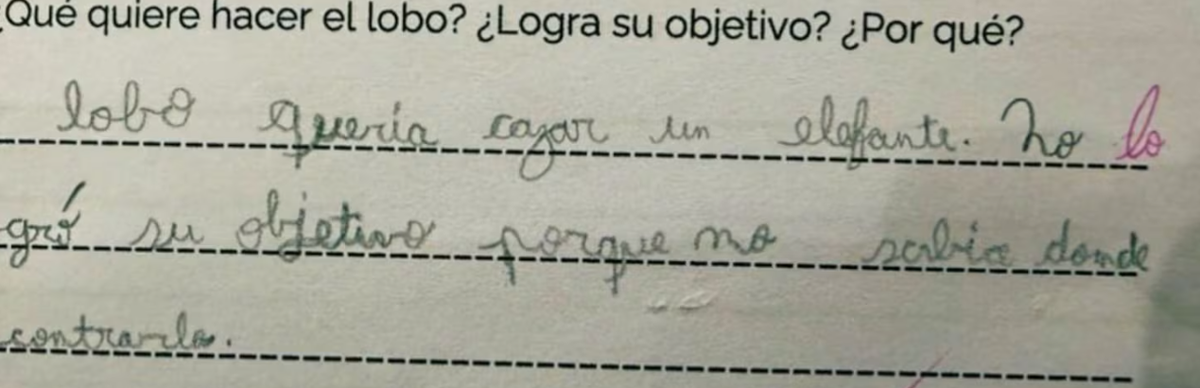 ¿Qué quiere hacer el lobo? ¿Logra su objetivo? ¿Por qué?
lobo quería cazar un elefante. No lo
gró su objetivo porque no sabia donde
contrarlo.